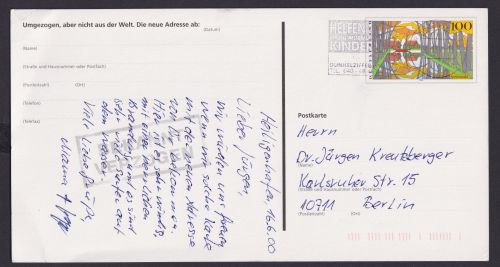 Umgezogen, aber nicht aus der Welt. Die neue Adresse ab:
(Datum)
(Name)
(Straße und Hausnummer oder Postfach)
(Postleitzahl) (Ort)
(Telefon)
(Telefax)
Heiligenhafen, 16.6.00
Lieber Jürgen,
wir würden uns freuen
wenn wir solche Karte
mit der neuen Adresse
von Dir bekommen.
Hier ist es sehr windig,
mit
Brandung und es sind
sehr viele Surfer auf
dem Wasser.
Viele liebe Grüße
HELFEN
KINDER
DUNKELZIFFER
TEL. 040-
100
Postkarte
Herrn
Dr. Jürgen Kreutzberger
Karlsruher Str. 15
(Straße und Hausnummer oder Postfach)
10711 Berlin
(Postleitzahl) (Ort)